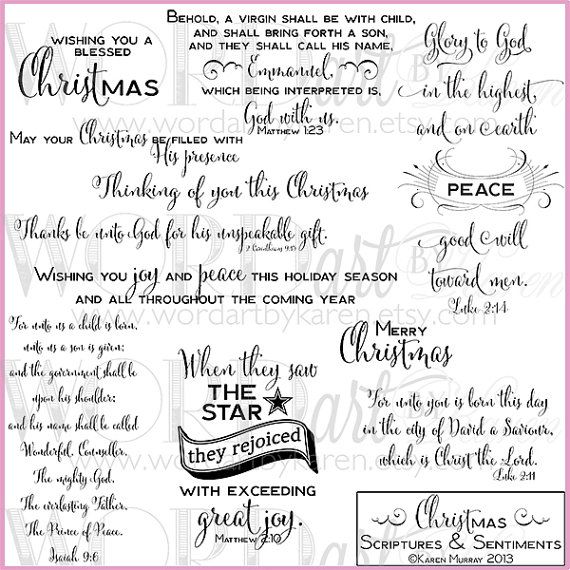 WISHING YOU A
BLESSED
CHRISTMAS
BEHOLD, A VIRGIN SHALL BE WITH CHILD,
AND SHALL BRING FORTH A SON,
AND THEY SHALL CALL HIS NAME,
Emmanuel,
WHICH BEING INTERPRETED IS,
God with us.
MATTHEW 1:23
Glory to God
in the highest,
and on earth
PEACE
good will
toward men.
Luke 2:14
MAY YOUR Christmas BE FILLED WITH
His presence
Thinking of you this Christmas
Thanks be unto God for his unspeakable gift.
2 Corinthians 9:15
WISHING YOU joy AND peace THIS HOLIDAY SEASON
AND ALL THROUGHOUT THE COMING YEAR
For unto us a child is born,
unto us a son is given:
and the government shall be
upon his shoulder:
and his name shall be called
Wonderful, Counsellor,
The mighty God,
The everlasting Father,
The Prince of Peace.
Isaiah 9:6
When they saw
THE
STAR
they rejoiced
WITH EXCEEDING
great joy.
MATTHEW 2:10
MERRY
Christmas
For unto you is born this day
in the city of David a Saviour,
which is Christ the Lord.
Luke 2:11
CHRISTMAS
SCRIPTURES & SENTIMENTS
©KAREN MURRAY 2013
WORD art BY Karen
www.wordartbykaren.etsy.com